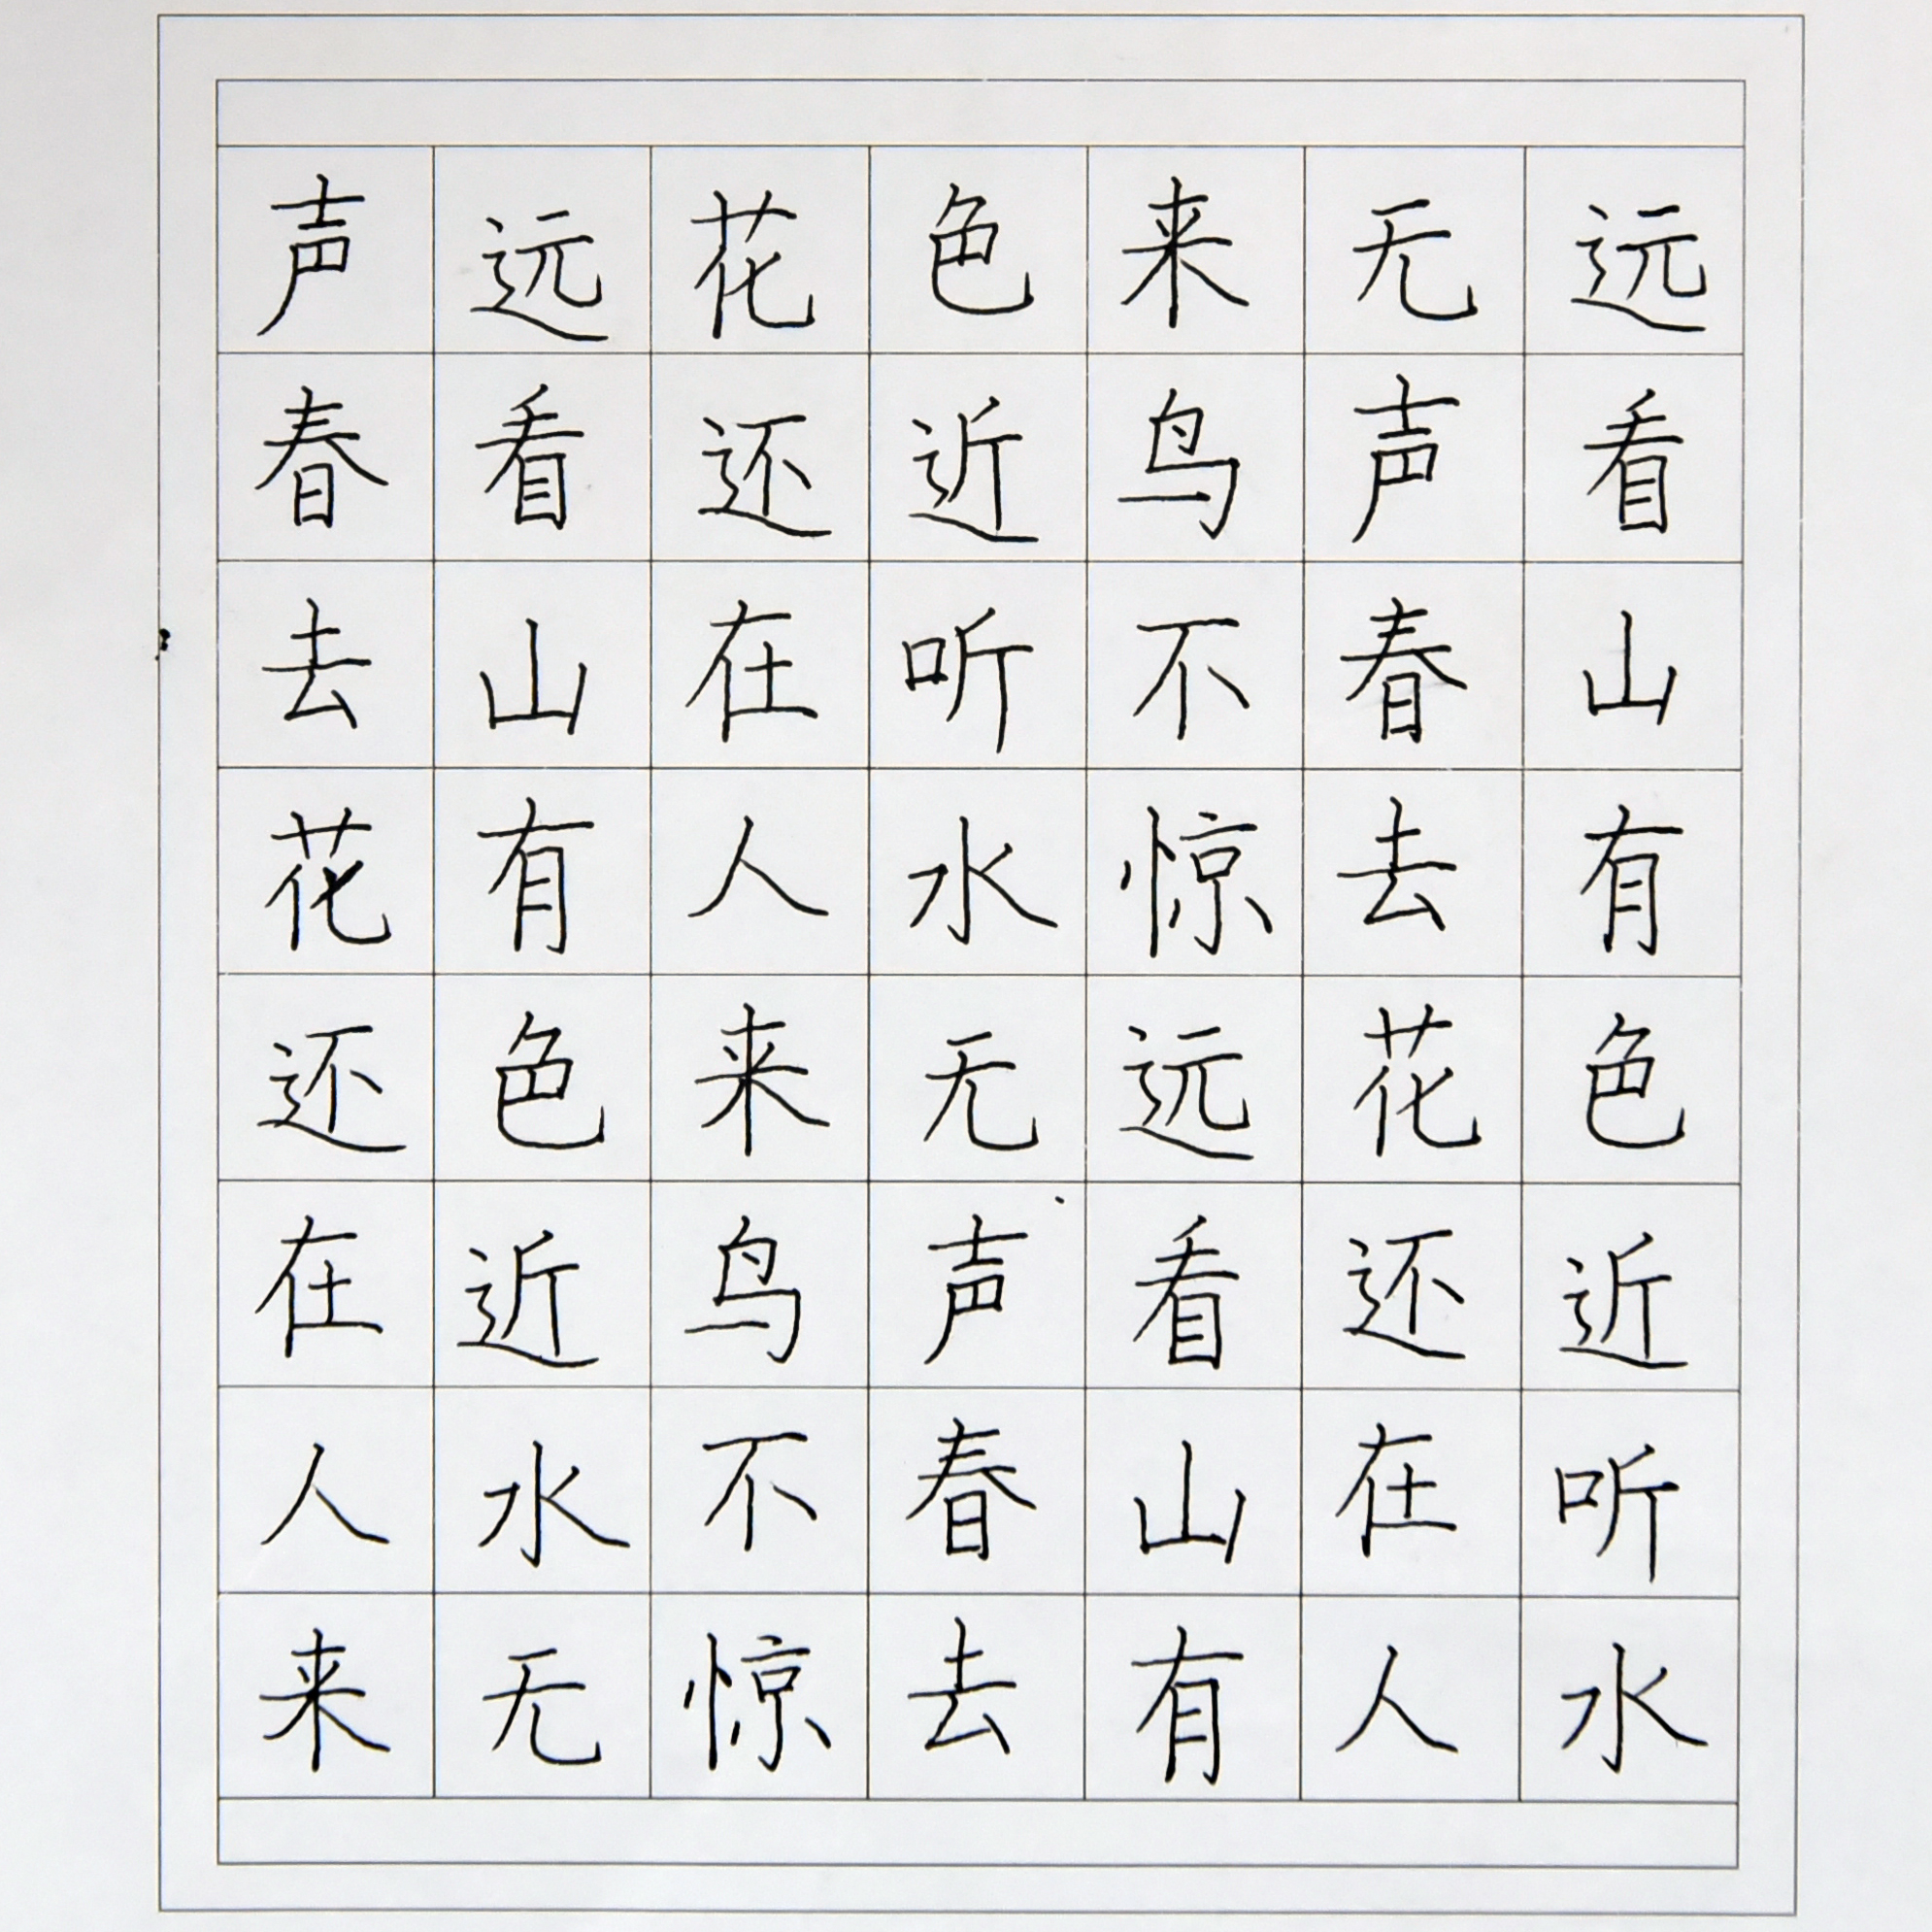 远看山有色近听水
无声春去花还在人
来鸟不惊远看山有
色近听水无声春去
花还在人来鸟不惊
远看山有色近水无
声春去花还在人来